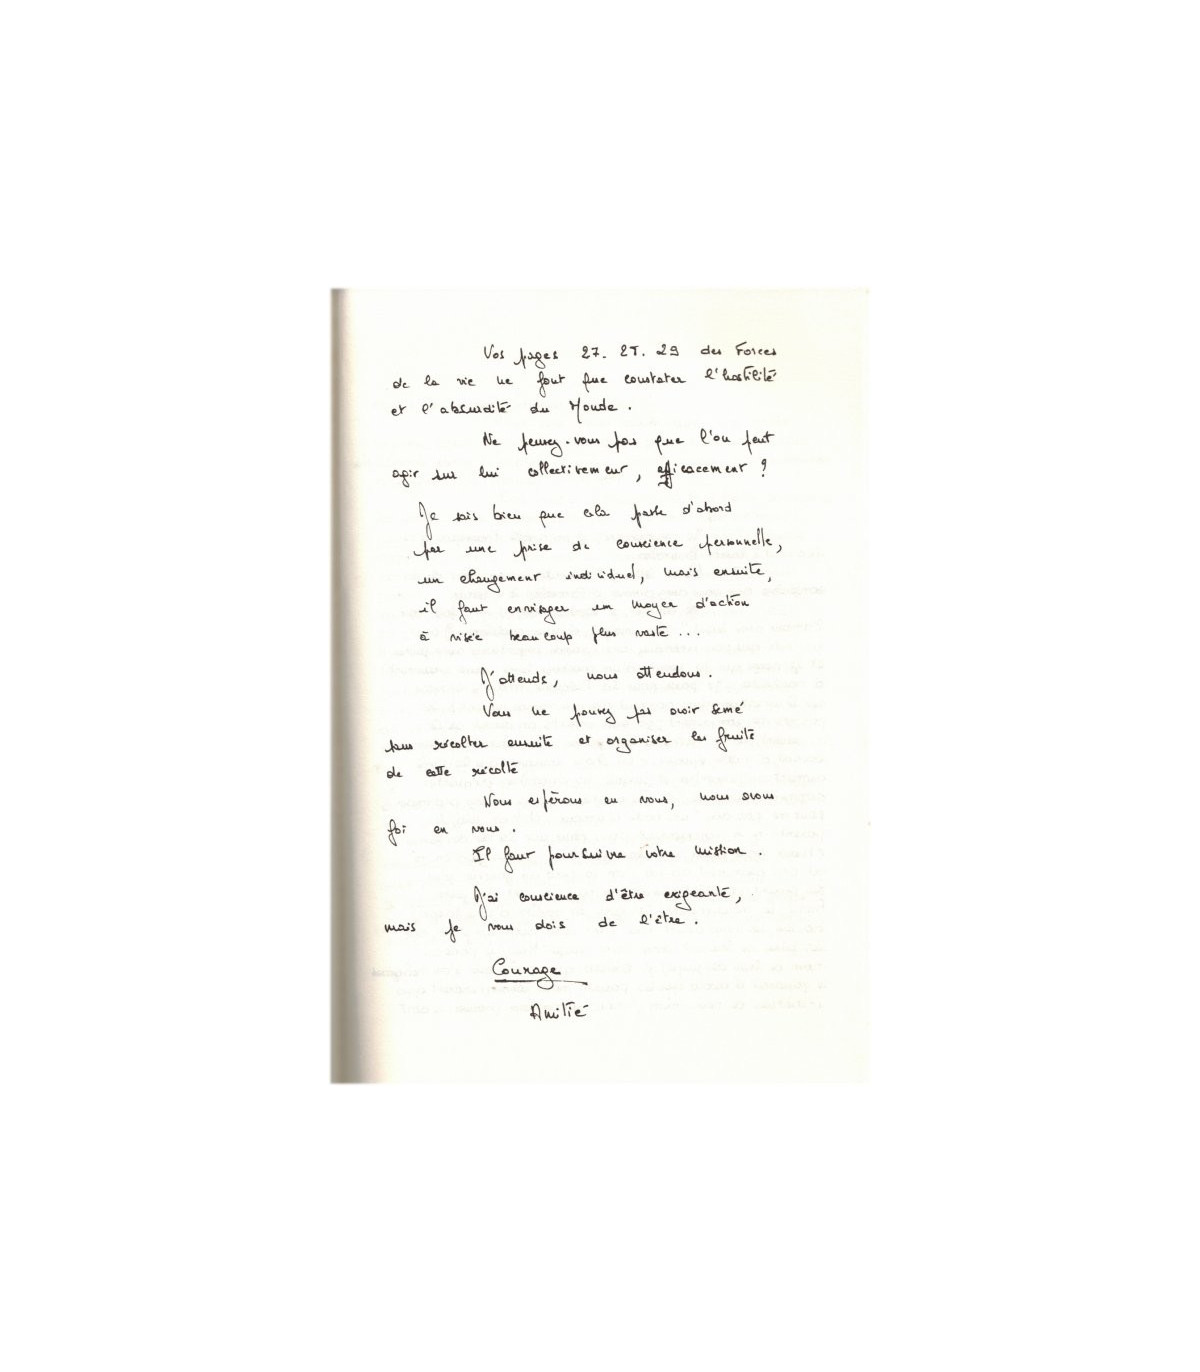 Vos pages 27. 28. 29 des Forces
de la vie ne font que constater l'hostilité
et l'absurdité du Monde.
Ne pensez-vous pas que l'on peut
agir sur lui collectivement, efficacement ?
Je sais bien que cela passe d'abord
par une prise de conscience personnelle,
un changement individuel, mais ensuite,
il faut envisager un moyen d'action
à visée beaucoup plus vaste...
J'attends, nous attendons.
Vous ne pouvez pas avoir semé
sans récolter ensuite et organiser les fruits
de cette récolte
Nous espérons en vous, nous avons
foi en vous.
Il faut poursuivre votre mission.
J'ai conscience d'être exigeante,
mais je vous dois de l'être.
Courage
Amitié